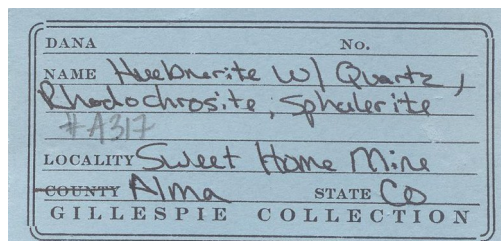 DANA No.
NAME Huebnerite w/ Quartz,
Rhodochrosite, Sphalerite
#A317
LOCALITY Sweet Home Mine
COUNTY Alma STATE CO
GILLESPIE COLLECTION